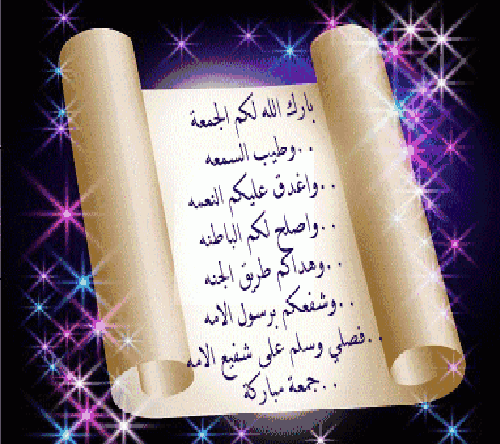 بارك الله لكم الجمعة
..وطيب السمعه
..واغدق عليكم النعمه
..واصلح لكم الباطنه
..وهداكم طريق الجنه
..وشفعكم برسول الامه
..فصلي وسلم على شفيع الامه
..جمعة مباركة